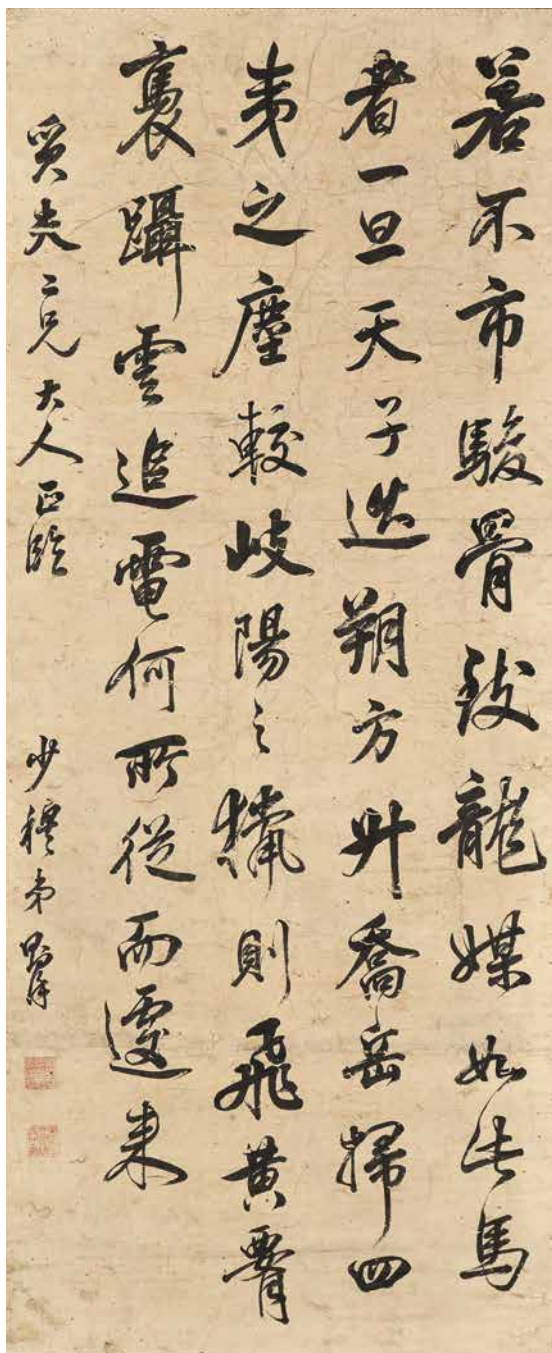 若不市駿骨致龍媒如此馬
者一旦天子巡朔方升喬岳掃四
夷之塵較岐陽之獵則飛黃腰
褭躡雲追電何所從而遽來
質夫二兄大人正臨
少穆弟則徐